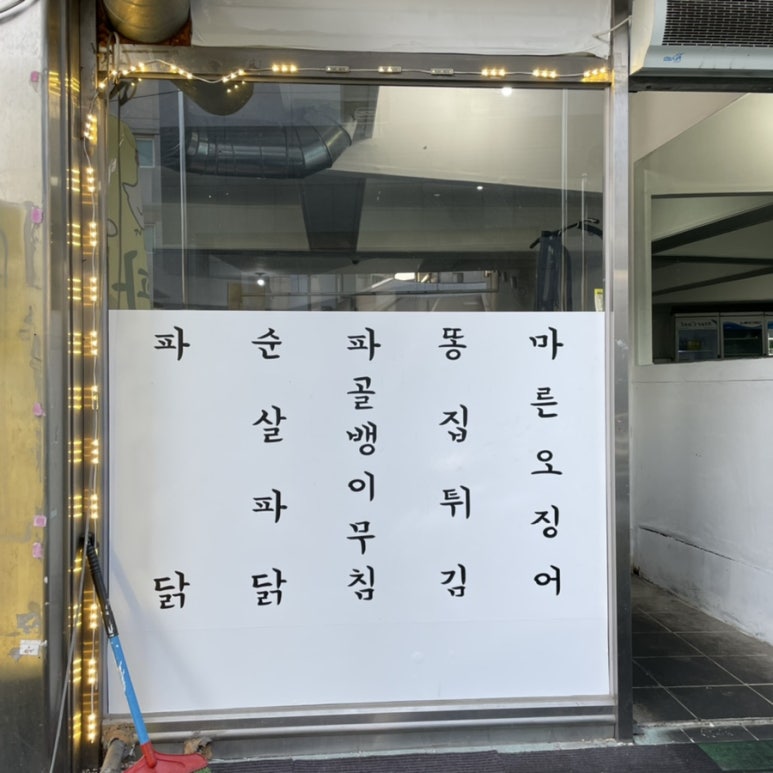 파닭
순살파닭
파골뱅이무침
똥집튀김
마른오징어